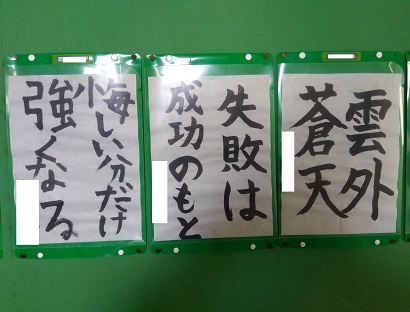 雲外
蒼天
失敗は
成功のもと
悔しい分だけ
強くなる